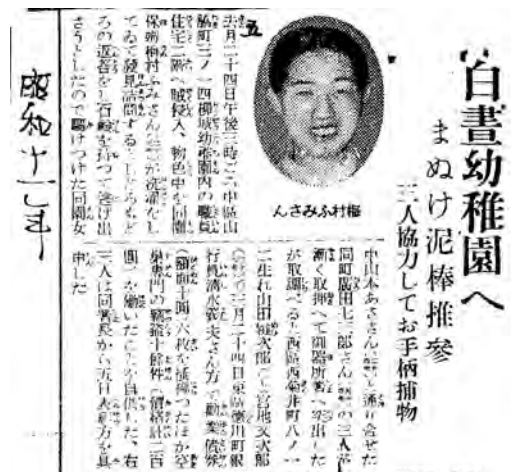 白晝幼稚園へ
まぬけ泥棒推參
三人協力してお手柄捕物
梅村ふみさん
五
去月二十四日午後三時ごろ中區山
脇町三ノ一四柳城幼稚園内の職員
住宅二階へ賊侵入、物色中を同園
保姆梅村ふみさんが洗濯をし
てゐて發見詰問するとしどろもど
ろの返答をし石鹼を持つて逃げ出
さうとしたので駆けつけた同園女
中山本あささん、通り合せた
同町廣田七三郎さんの三人が
漸く取押へて御器所署へ突出した
が取調べると西區西菊井町八ノ一
二生れ山田
で三月二十四日東區德川町銀
行員清水義夫さん方で勸業債券
（額面十圓）六枚を
巣専門の竊盗十餘件（價格計二百
圓）を働いたことを自供した、右
三人は同署長から五日表彰方を具
申した
昭和十一年